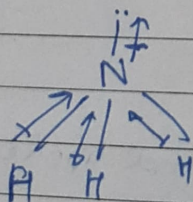 N
H H H